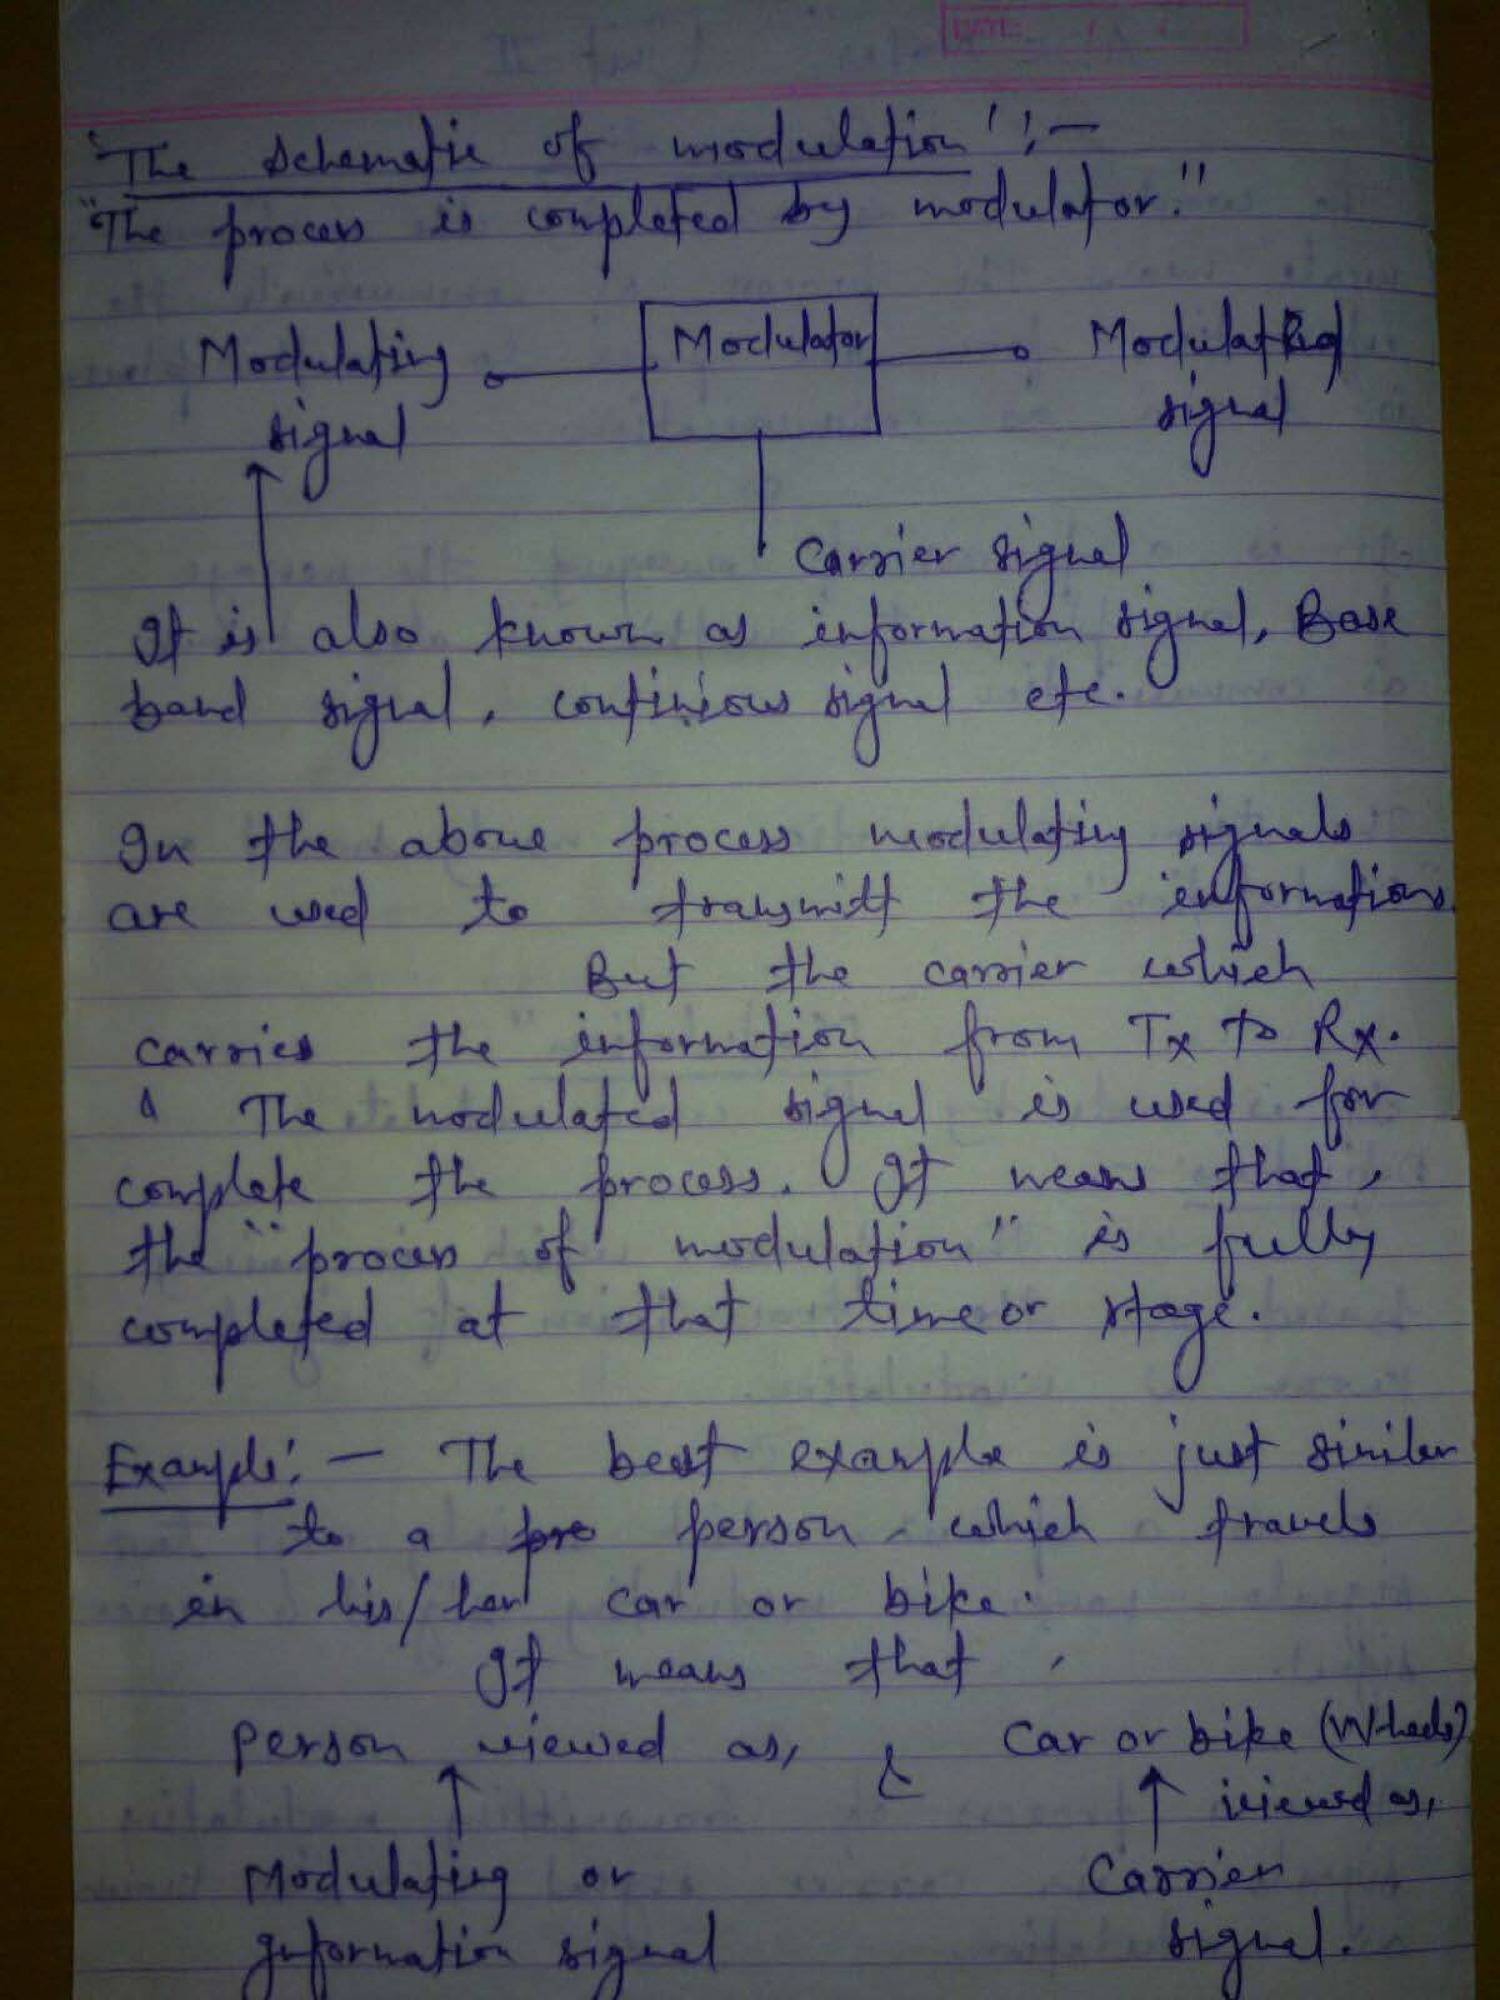 DATE:
"The schematic of modulation" :-
"The process is completed by modulator."
Modulating
signal
Modulator
Modulated
signal
Carrier signal
It is also known as information signal, Base
band signal, continious signal etc.
In the above process modulating signals
are used to transmitt the informations
But the carrier which
carries the information from Tx to Rx.
& The modulated signal is used for
complete the process. It means that,
the "process of modulation" is fully
completed at that time or stage.
Example:- The best example is just similer
to a pro person which travels
in his/her car or bike.
It means that,
person viewed as, & Car or bike (Wheels)
viewed as,
Modulating or
Information signal
Carrier
signal.